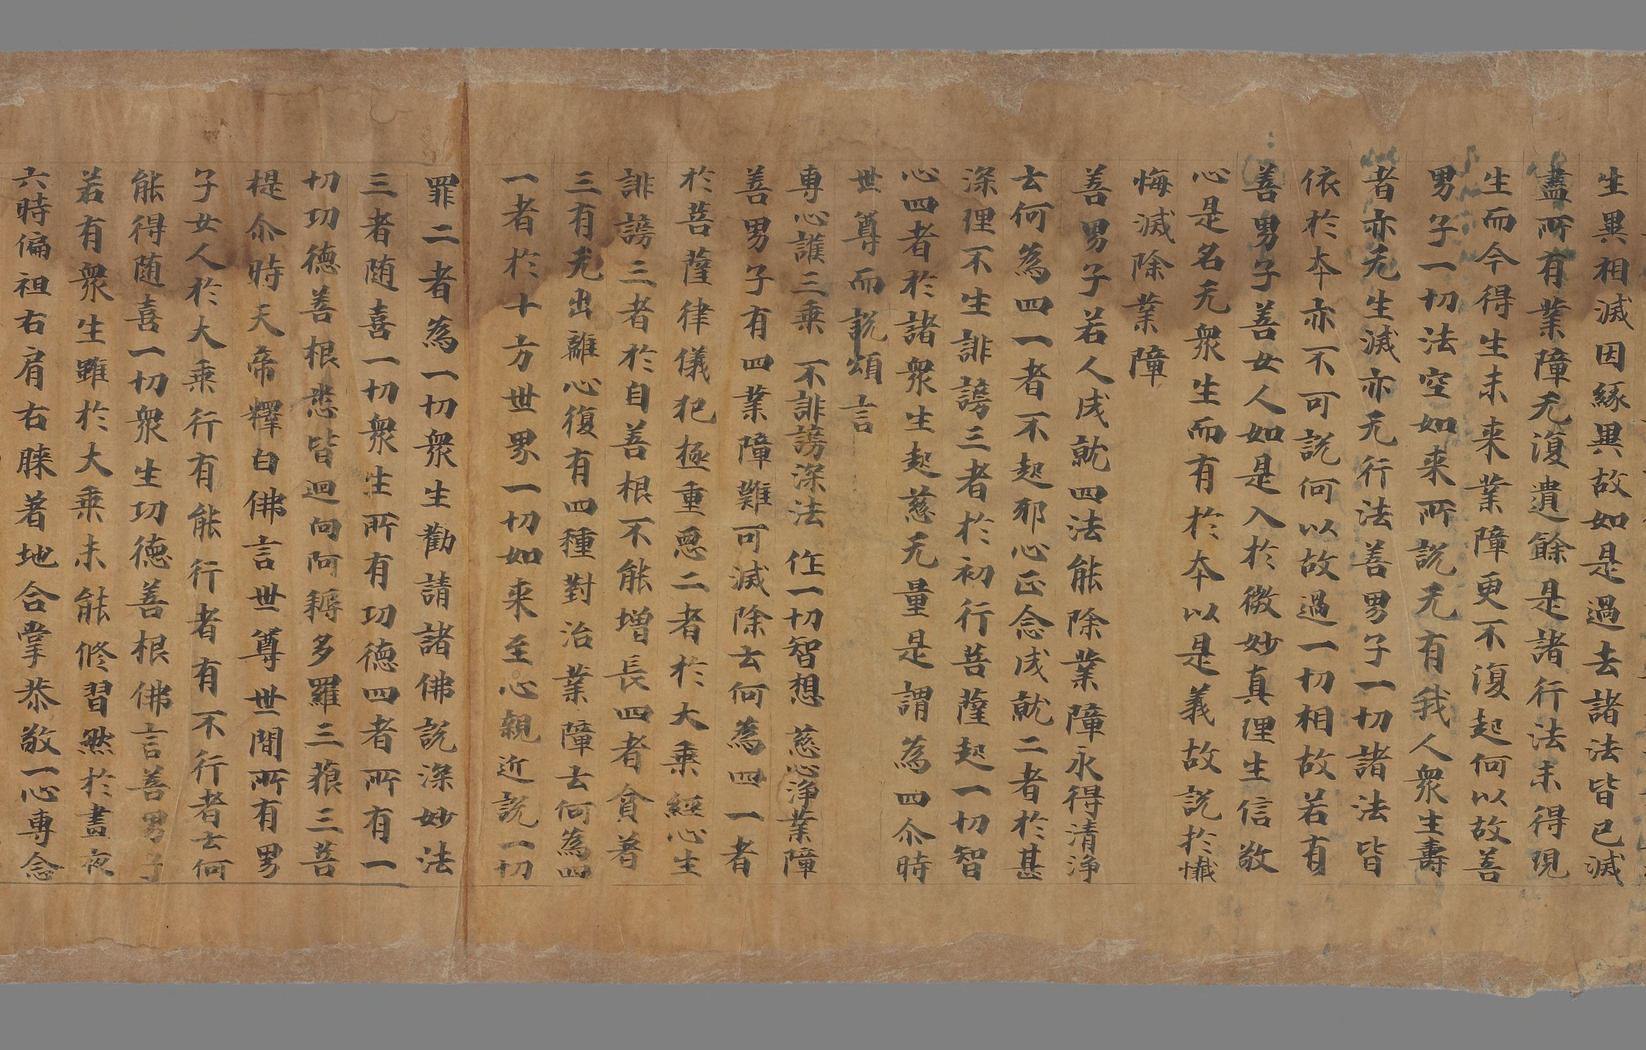 生異相滅因緣異故如是過去諸法皆已滅
盡所有業障无復遺餘是諸行法未得現
生而今得生未來業障更不復起何以故善
男子一切法空如來所説无有我人衆生壽
者亦无生滅亦无行法善男子一切諸法皆
依於本亦不可説何以故過一切相故若有
善男子善女人如是入於微妙真理生信敬
心是名无衆生而有於本以是義故説於懺
悔滅除業障
善男子若人成就四法能除業障永得清淨
云何為四一者不起邪心正念成就二者於甚
深理不生誹謗三者於初行菩薩起一切智
心四者於諸衆生起慈无量是謂為四尒時
世尊而説頌言
專心護三乘 不誹謗深法 作一切智想 慈心淨業障
善男子有四業障難可滅除云何為四一者
於菩薩律儀犯極重惡二者於大乘經心生
誹謗三者於自善根不能增長四者貪著
三有无出離心復有四種對治業障云何為四
一者於十方世界一切如來至心親近説一切
罪二者為一切衆生勸請諸佛説深妙法
三者随喜一切衆生所有功德四者所有一
切功德善根悉皆迴向阿耨多羅三藐三菩
提尒時天帝釋白佛言世尊世間所有男
子女人於大乘行有能行者有不行者云何
能得随喜一切衆生功德善根佛言善男子
若有衆生雖於大乘未能修習然於晝夜
六時偏袒右肩右膝著地合掌恭敬一心專念